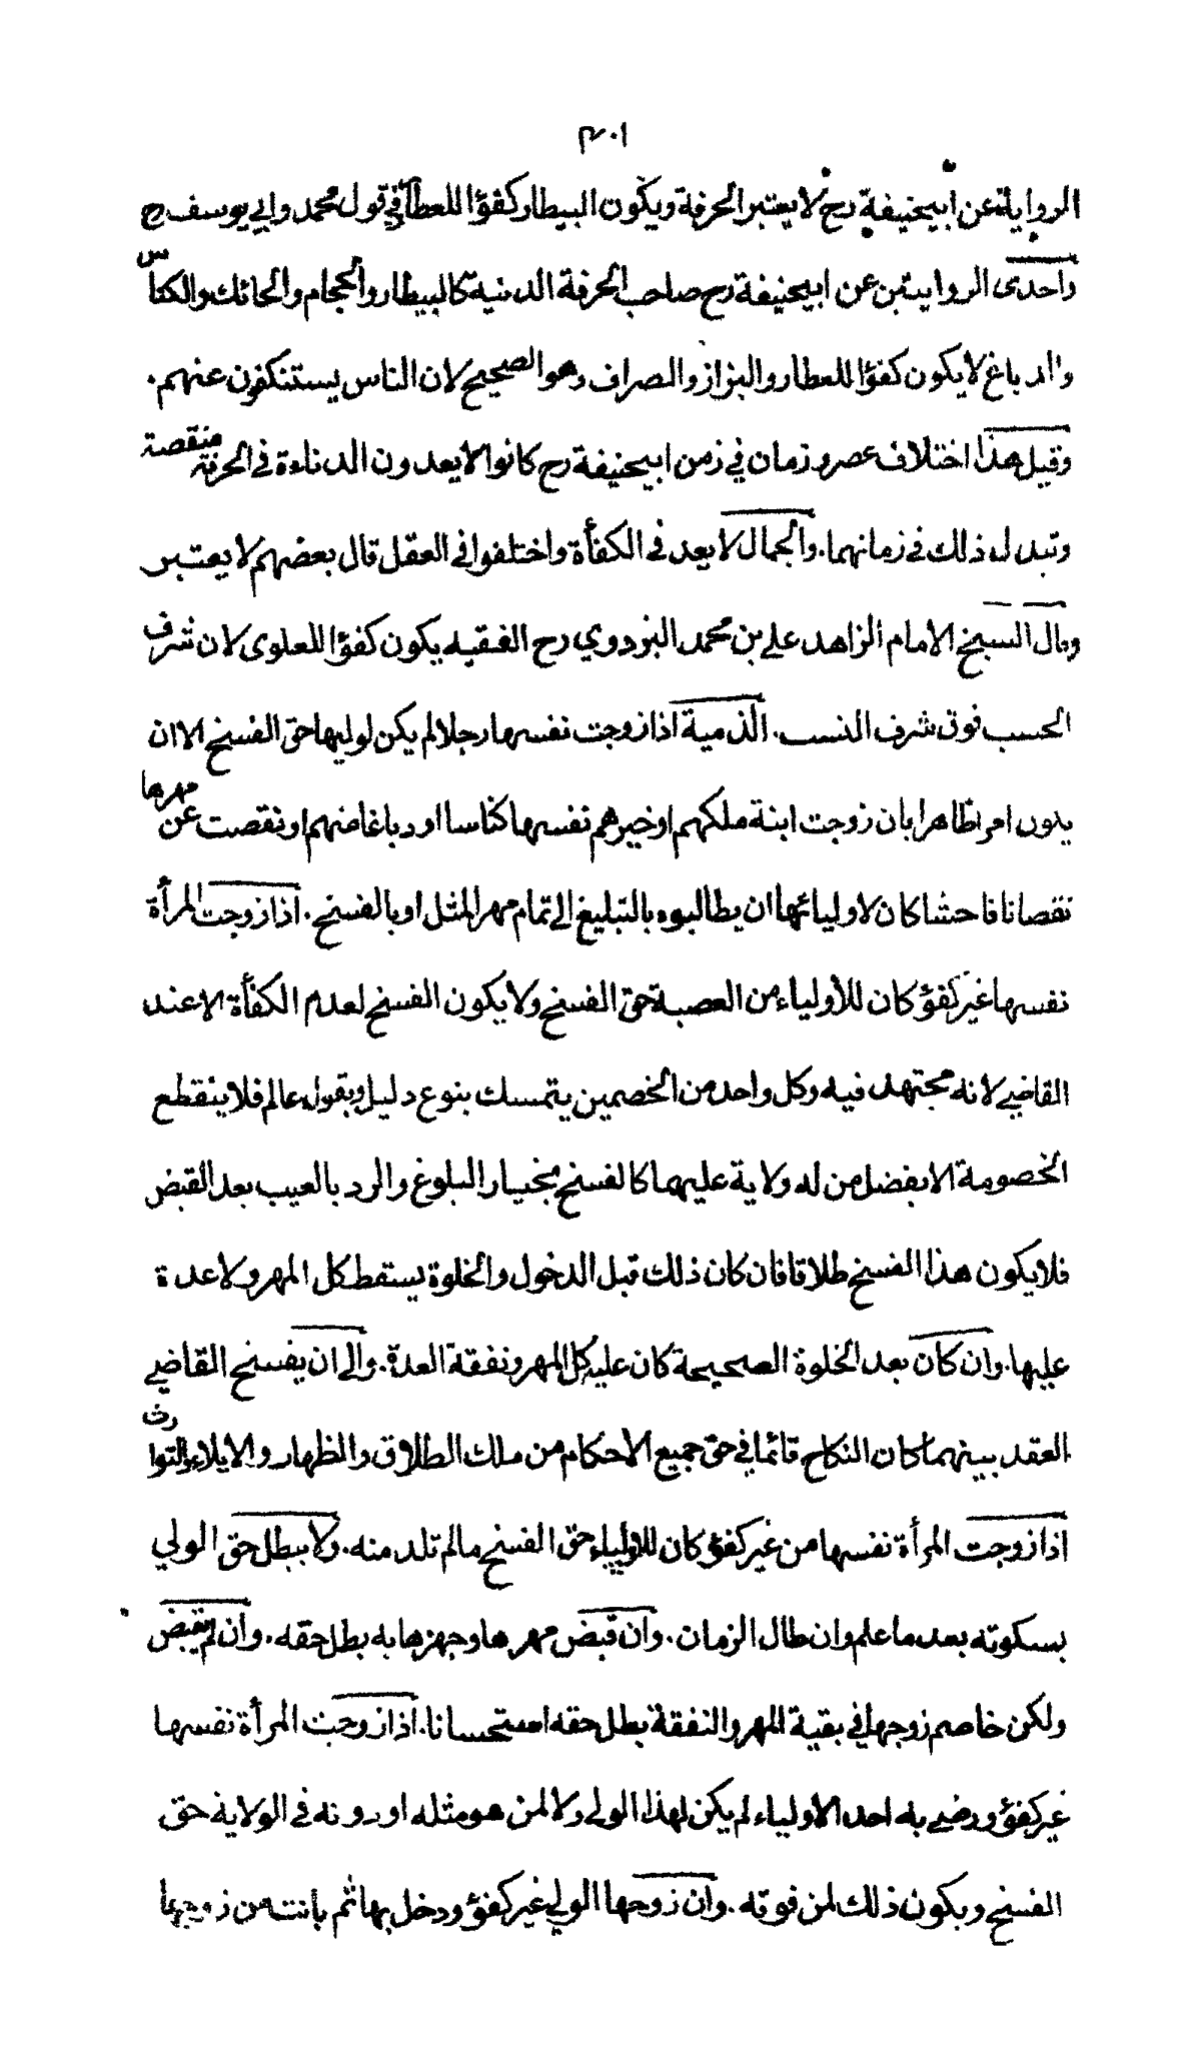 ٤٠١
الرواية عن ابيحنيفة رح لا يعتبر الحرفة ويكون البيطار كفؤا للعطار في قول محمد وابي يوسف رح
واحدى الروايتين عن ابيحنيفة رح صاحب الحرفة الدنية كالبيطار والحجام والحائك والكناس
والدباغ لا يكون كفؤا للعطار والبزاز والصراف وهو الصحيح لان الناس يستنكفون عنهم.
وقيل هذا اختلاف عصر وزمان في زمن ابيحنيفة رح كانوا لا يعدون الدناءة في الحرفة منقصة
وتبدل ذلك في زمانهما. والجمال لا يعد في الكفأة واختلفوا في العقل قال بعضهم لا يعتبر
وقال الشيخ الامام الزاهد علي بن محمد البزدوي رح الفقيه يكون كفؤا للعلوى لان شرف
الحسب فوق شرف النسب. الذمية اذا زوجت نفسها رجلا لم يكن لوليها حق الفسخ الا ان
يكون امرا ظاهرا بان زوجت ابنة ملكهم او خيرهم نفسها كناسا او دباغا منهم او نقصت عن مهرها
نقصانا فاحشا كان لاوليائها ان يطالبوه بالتبليغ الى تمام مهر المثل او بالفسخ. اذا زوجت المرأة
نفسها غير كفؤ كان للأولياء من العصبة حق الفسخ ولا يكون الفسخ لعدم الكفأة الا عند
القاضي لانه مجتهد فيه وكل واحد من الخصمين يتمسك بنوع دليل وبقول عالم فلا ينقطع
الخصومة الا بفضل من له ولاية عليهما كالفسخ بخيار البلوغ والرد بالعيب بعد القبض
فلا يكون هذا الفسخ طلاقا فان كان ذلك قبل الدخول والخلوة يسقط كل المهر ولا عدة
عليها. وان كان بعد الخلوة الصحيحة كان عليه كل المهر ونفقة العدة. والى ان يفسخ القاضي
العقد بينهما كان النكاح قائما في حق جميع الاحكام من ملك الطلاق والظهار والايلاء والتوارث
اذا زوجت المرأة نفسها من غير كفؤ كان للاولياء حق الفسخ ما لم تلد منه. ولا يبطل حق الولي
بسكوته بعد ما علم وان طال الزمان. وان قبض مهرها وجهزها به بطل حقه. وان لم يقبض
ولكن خاصم زوجها في بقية المهر والنفقة بطل حقه استحسانا. اذا زوجت المرأة نفسها
غير كفؤ ورضي به احد الاولياء لم يكن لهذا الولي ولا لمن هو مثله او دونه في الولاية حق
الفسخ ويكون ذلك لمن فوقه. وان زوجها الولي غير كفؤ ودخل بها ثم بانت من زوجها